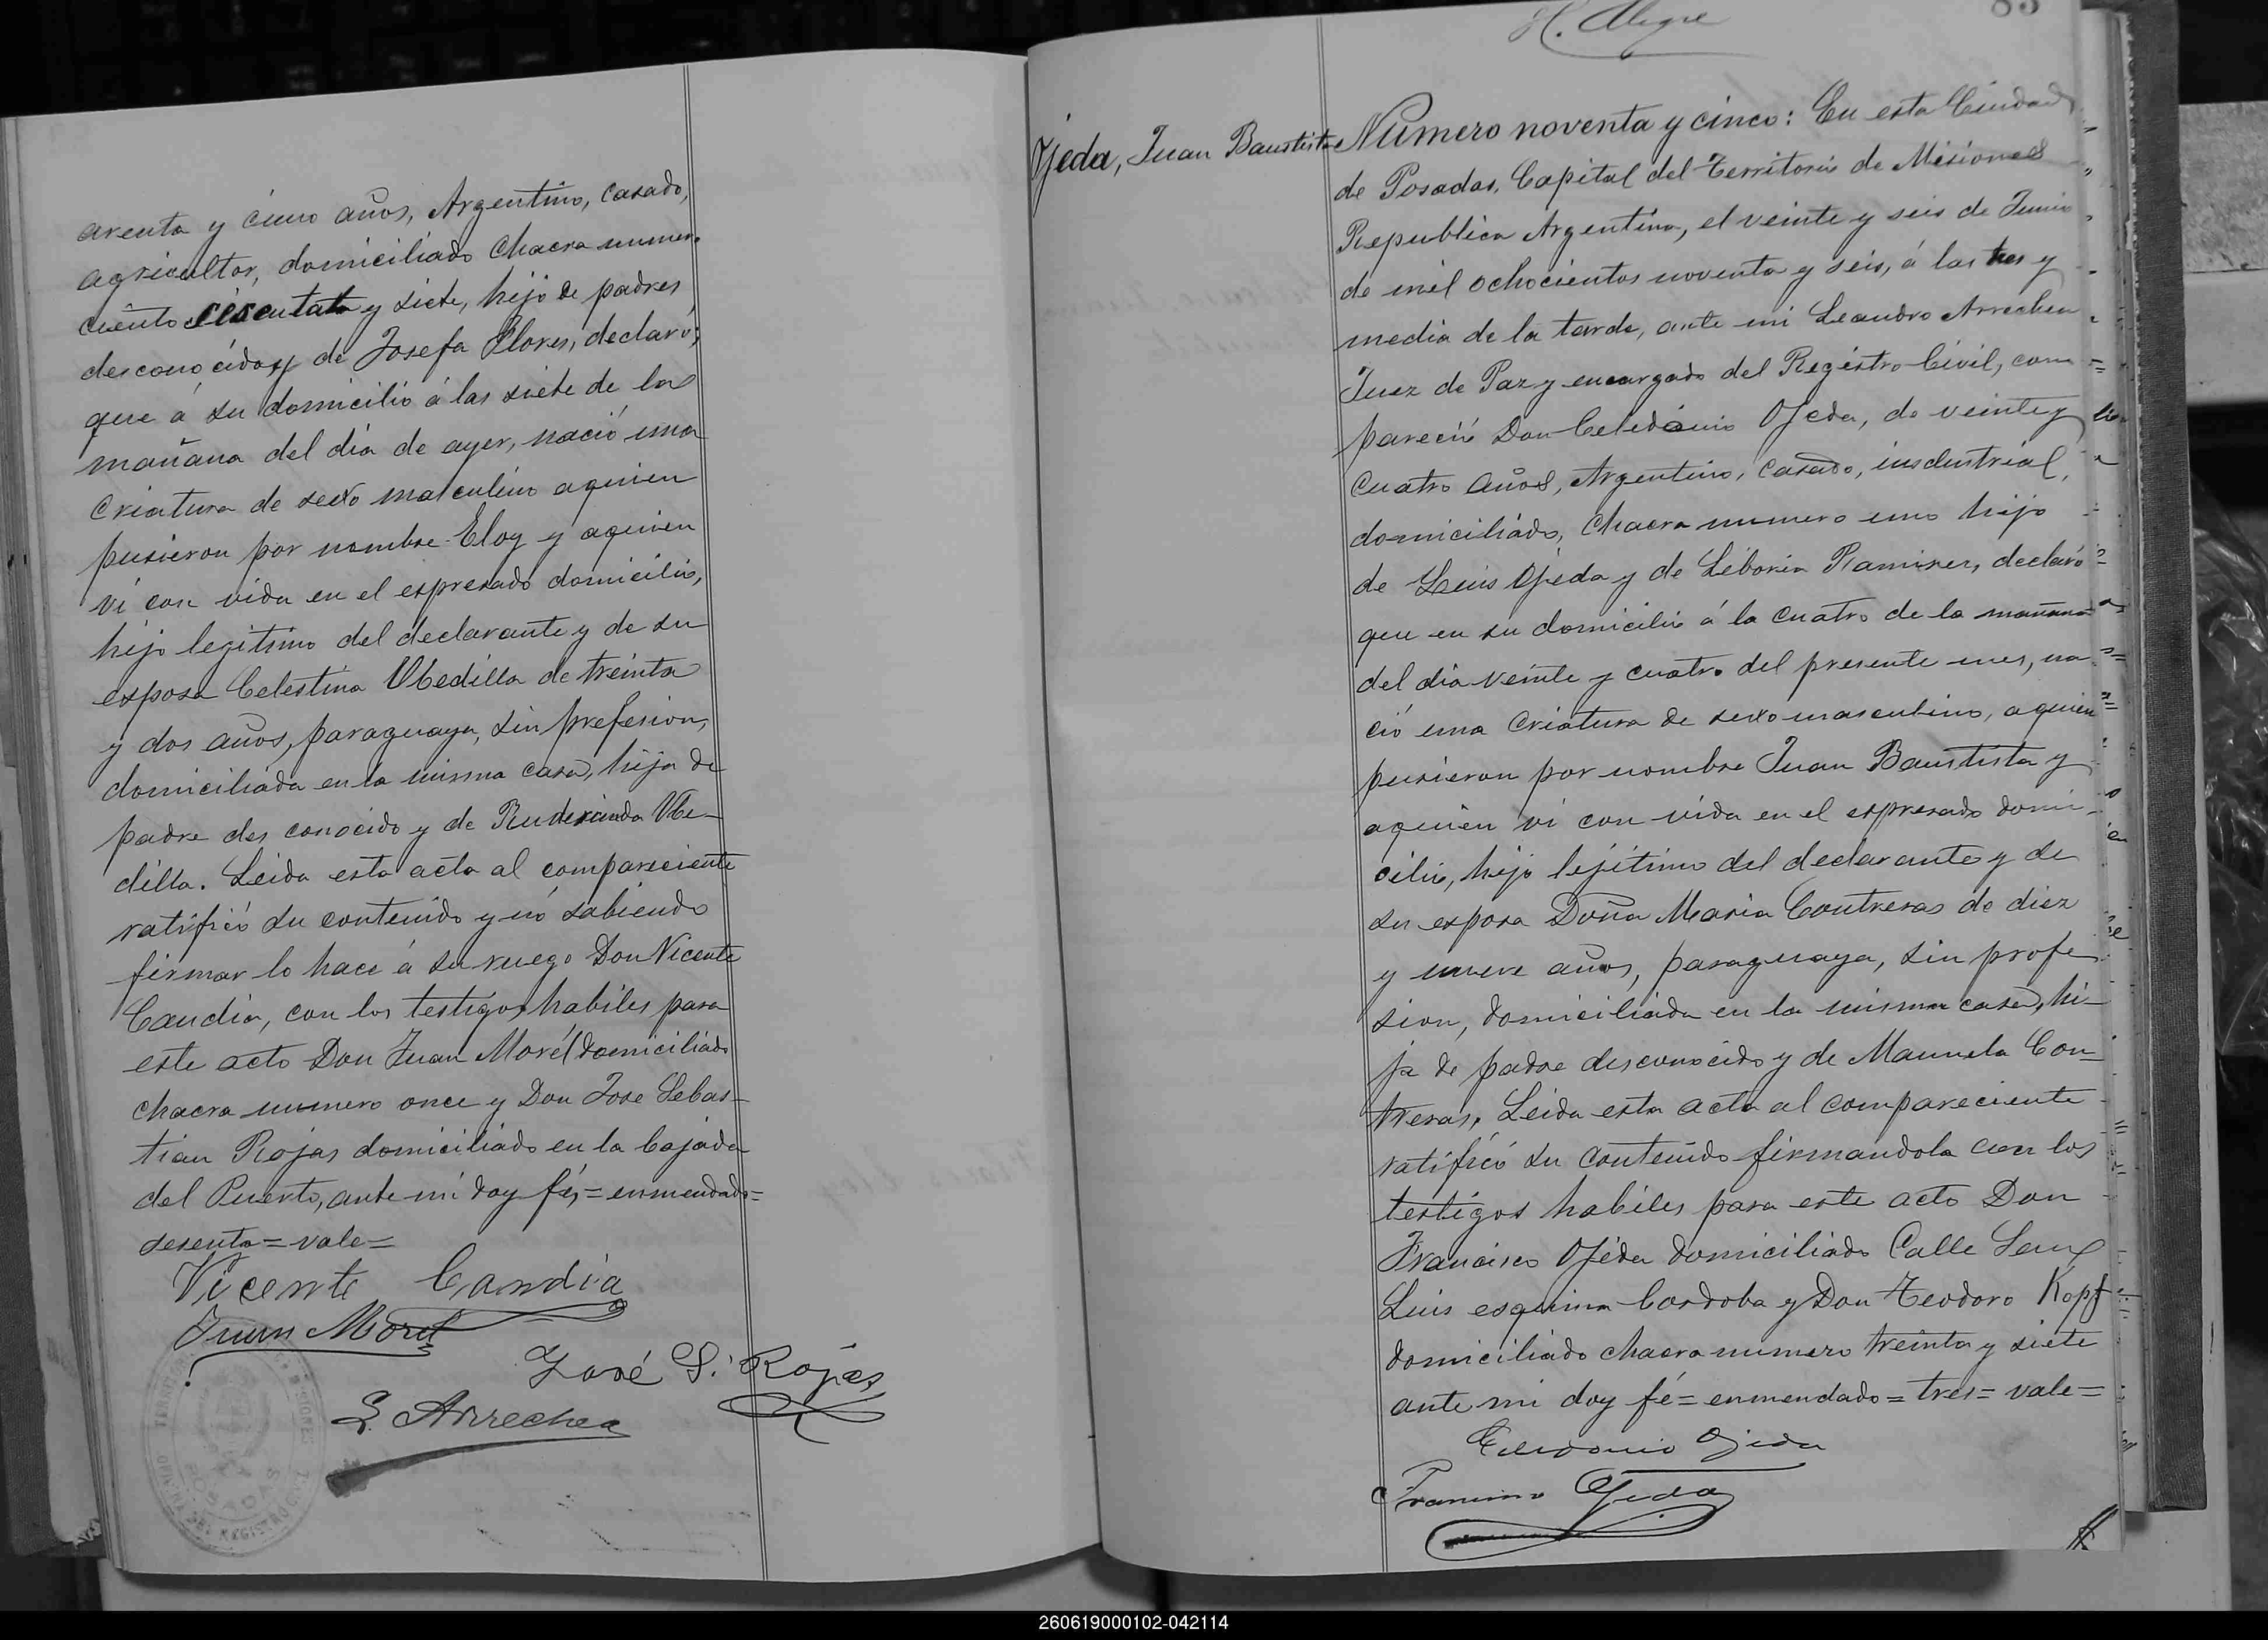 arenta y cinco años, Argentino, casado,
agricultor, domiciliado Chacra numer.
ciento sesenta y siete, hijo de padres
desconocidos y de Josefa Flores, declaró;
que á su domicilio á las siete de la
mañana del dia de ayer, nació una
criatura de sexo masculino aquien
pusieron por nombre Eloy y aquien
ví con vida en el espresado domicilio,
hijo legitimo del declarante y de su
esposa Celestina Obedilla de treinta
y dos años, paraguaya, sin profesion,
domiciliada en la misma casa, hija de
padre des conocido y de Rudesinda Obe-
dilla. Leida esta acta al compareciente
ratificó su contenido y nó sabiendo
firmar lo hace á su ruego Don Vicente
Candia, con los testigos habiles para
este acto Don Juan Morél domiciliado
chacra numero once y Don Jose Sebas-
tian Rojas domiciliado en la bajada
del Puerto, ante mi doy fé,=enmendado=
sesenta=vale=
Vicente Candia
Juan Morel
José S. Rojas
L. Arrechea
POSADAS
H. Alegre
Ojeda, Juan Baustista
Numero noventa y cinco: En esta Ciudad
de Posadas, Capital del Territorio de Misiones
Republica Argentina, el veinte y seis de Junio
de mil ochocientos noventa y seis, á las tres y
media de la tarde, ante mi Leandro Arrechea
Juez de Paz y encargado del Registro Civil, com
pareció Don Celedónio Ojeda, de veinte y
cuatro años, Argentino, casado, insdustrial,
domiciliado, Chacra numero uno hijo
de Luis Ojeda y de Liboria Ramires, declaró
que en su domicilio á la cuatro de la mañana
del dia veinte y cuatro del presente mes, na
ció una criatura de sexo masculino, aquien
pusieron por nombre Juan Baustista y
aquien ví con vida en el espresado domi-
cilio, hijo lejítimo del declarante y de
su esposa Doña Maria Contreras de diez
y nueve años, paraguaya, sin profe
sion, domiciliada en la misma casa, hi-
ja de padre desconocido y de Manuela Con-
treras. Leida esta acta al compareciente
ratificó su contenido firmandola con los
testigos habiles para este acto Don
Francisco Ojeda domiciliado Calle San
Luis esquina Cordoba y Don Teodoro Kopf
domiciliado chacra numero treinta y siete
ante mi doy fé=enmendado=tres=vale=
Celedonio Ojeda
Francisco Ojeda
260619000102-042114